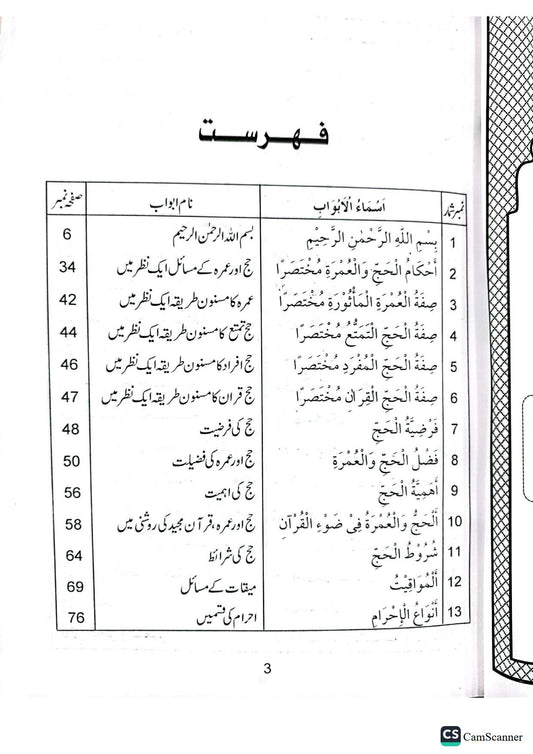 فہرست
نمبر شمار اَسْمَاءُ الْاَبْوَابِ نام ابواب صفحہ نمبر
1 بِسْمِ اللّٰهِ الرَّحْمٰنِ الرَّحِيْمِ بسم اللہ الرحمٰن الرحیم 6
2 أَحْكَامُ الْحَجِّ وَالْعُمْرَةِ مُخْتَصَرًا حج اور عمرہ کے مسائل ایک نظر میں 34
3 صِفَةُ الْعُمْرَةِ الْمَأْثُوْرَةِ مُخْتَصَرًا عمرہ کا مسنون طریقہ ایک نظر میں 42
4 صِفَةُ الْحَجِّ الْتَمَتُّعِ مُخْتَصَرًا حج تمتع کا مسنون طریقہ ایک نظر میں 44
5 صِفَةُ الْحَجِّ الْمُفْرَدِ مُخْتَصَرًا حج افراد کا مسنون طریقہ ایک نظر میں 46
6 صِفَةُ الْحَجِّ الْقِرَانِ مُخْتَصَرًا حج قران کا مسنون طریقہ ایک نظر میں 47
7 فَرْضِيَّةُ الْحَجِّ حج کی فرضیت 48
8 فَضْلُ الْحَجِّ وَالْعُمْرَةِ حج اور عمرہ کی فضیلت 50
9 أَهَمِيَّةُ الْحَجِّ حج کی اہمیت 56
10 اَلْحَجُّ وَالْعُمْرَةُ فِىْ ضَوْءِ الْقُرْآنِ حج اور عمرہ، قرآن مجید کی روشنی میں 58
11 شُرُوْطُ الْحَجِّ حج کی شرائط 64
12 اَلْمَوَاقِيْتُ میقات کے مسائل 69
13 أَنْوَاعُ الْإِحْرَامِ احرام کی قسمیں 76
3
CS CamScanner